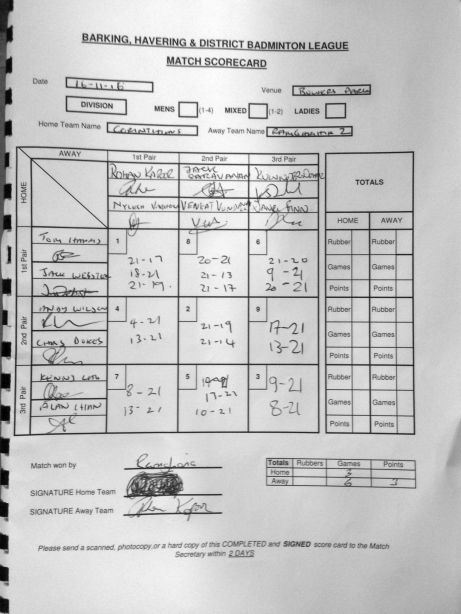 BARKING, HAVERING & DISTRICT BADMINTON LEAGUE
MATCH SCORECARD
Date 16-11-16
Venue
DIVISION MENS (1-4) MIXED (1-2) LADIES
Home Team Name CORINTHIANS Away Team Name 2
AWAY 1st Pair 2nd Pair 3rd Pair
HOME
ROHAN KAPOR JACK
JANEL FINN
TOTALS
HOME AWAY
1st Pair
TOM HARRIS
JACK WEBSTER
1 8 6
21-17 20-21 21-20
18-21 21-13 9-21
21-19 21-17 20-21
Rubber Rubber
Games Games
Points Points
2nd Pair
ANDY WILSON
CHRIS DUKES
4 2 9
4-21 21-19 17-21
13-21 21-14 13-21
Rubber Rubber
Games Games
Points Points
3rd Pair
KENNY
ALAN CHAN
7 5 3
8-21 17-21 9-21
13-21 10-21 8-21
Rubber Rubber
Games Games
Points Points
Match won by
SIGNATURE Home Team
SIGNATURE Away Team
Totals Rubbers Games Points
Home 3
Away 6 3
Please send a scanned, photocopy,or a hard copy of this COMPLETED and SIGNED score card to the Match
Secretary within 2 DAYS